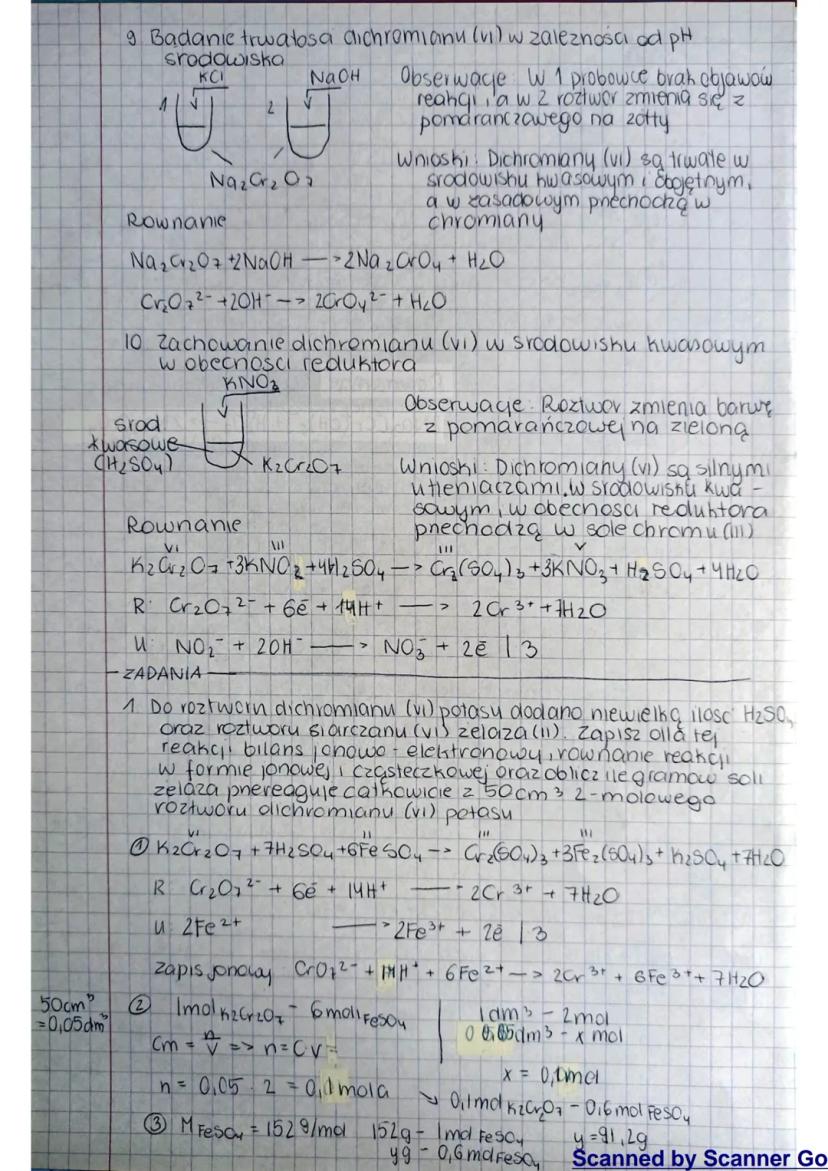 9 Badanie trwałosci dichromianu (VI) w zaleznosci od pH
srodowiska
KCl
NaOH
1
2
Na2Cr2O7
Obserwacje: W 1 probowce brak objawów
reakcji, a w 2 roztwor zmienia się z
pomaranczowego na zołty
Wnioski: Dichromiany (VI) są trwałe w
srodowisku kwasowym i obojętnym,
a w zasadowym przechodzą w
chromiany
Rownanie
Na2Cr2O7 + 2NaOH —> 2Na2CrO4 + H2O
Cr2O7²⁻ + 2OH⁻ —> 2CrO4²⁻ + H2O
10 Zachowanie dichromianu (VI) w srodowisku kwasowym
w obecnosci reduktora
KNO2
srod.
kwasowe
(H2SO4)
K2Cr2O7
Obserwacje: Roztwor zmienia barwę
z pomarańczowej na zieloną
Wnioski: Dichromiany (VI) są silnymi
utleniaczami, w srodowisku kwa-
sowym, w obecnosci reduktora
przechodzą w sole chromu (III)
Rownanie
VI III III V
K2Cr2O7 + 3KNO2 + 4H2SO4 —> Cr2(SO4)3 + 3KNO3 + H2SO4 + 4H2O
R: Cr2O7²⁻ + 6ē + 14H⁺ —> 2Cr³⁺ + 7H2O
U: NO2⁻ + 2OH⁻ —> NO3⁻ + 2ē | 3
- ZADANIA
1 Do roztworu dichromianu (VI) potasu dodano niewielką ilosc H2SO4
oraz roztworu siarczanu (VI) zelaza (II). Zapisz dla tej
reakcji bilans jonowo-elektronowy, rownanie reakcji
w formie jonowej i cząsteczkowej oraz oblicz ile gramow soli
zelaza przereaguje całkowicie z 50cm³ 2-molowego
roztworu dichromianu (VI) potasu
VI II III III
① K2Cr2O7 + 7H2SO4 + 6FeSO4 —> Cr2(SO4)3 + 3Fe2(SO4)3 + K2SO4 + 7H2O
R: Cr2O7²⁻ + 6ē + 14H⁺ —> 2Cr³⁺ + 7H2O
U: 2Fe²⁺ —> 2Fe³⁺ + 2ē | 3
zapis jonowy CrO7²⁻ + 14H⁺ + 6Fe²⁺ —> 2Cr³⁺ + 6Fe³⁺ + 7H2O
50cm³
=0,05dm³
② 1mol K2Cr2O7 - 6moli FeSO4
Cm = n/V => n = C·V =
n = 0,05 · 2 = 0,1 mola
1dm³ - 2mol
0,05dm³ - x mol
x = 0,1mol
↘ 0,1mol K2Cr2O7 - 0,6mol FeSO4
③ MFeSO4 = 152g/mol 152g - 1mol FeSO4 y = 91,2g
yg - 0,6mol FeSO4
Scanned by Scanner Go